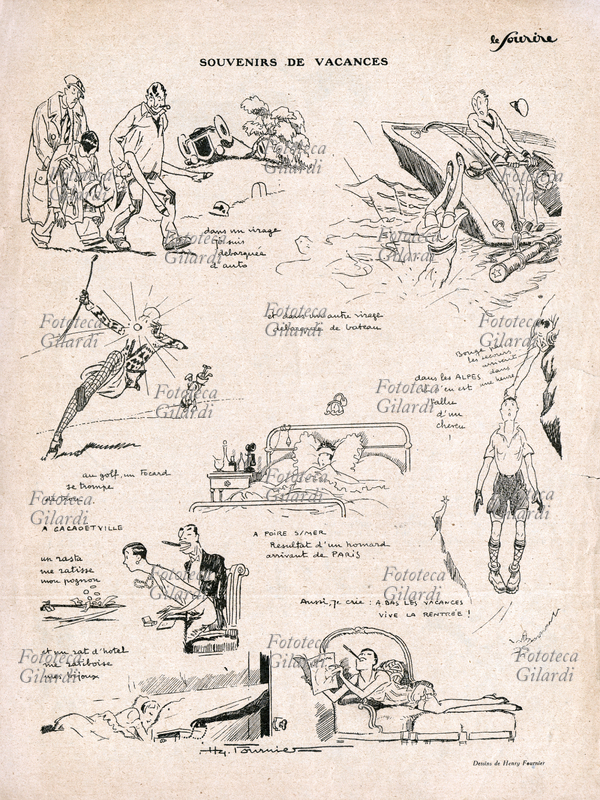 le Sourire
SOUVENIRS DE VACANCES
dans un virage
je suis
débarquée
d'auto
et dans un autre virage
débarquée de bateau
Bouge pas
les secours
arrivent
dans
une heure
dans les ALPES
s'en est
fallu
d'un
cheveu
!
au golf, un tocard
se trompe
A CACADETVILLE
un rasta
me ratisse
mon pognon
A POIRE S/MER
Résultat d'un homard
arrivant de PARIS
et un rat d'hotel
me ratiboise
mes bijoux
Aussi, je crie : A BAS LES VACANCES
VIVE LA RENTRÉE !
Hy. Fournier
Dessins de Henry Fournier
Fototeca
Gilardi
Fototeca
Gilardi
Fototeca
Gilardi
Fototeca
Gilardi
Fototeca
Gilardi
Fototeca
Gilardi
Fototeca
Gilardi
Fototeca
Gilardi
Fototeca
Gilardi
Fototeca
Gilardi
Fototeca
Gilardi
Fototeca
Gilardi
Fototeca
Gilardi
Fototeca
Gilardi
Fototeca
Gilardi
Fototeca
Gilardi
Fototeca
Gilardi
Fototeca
Gilardi